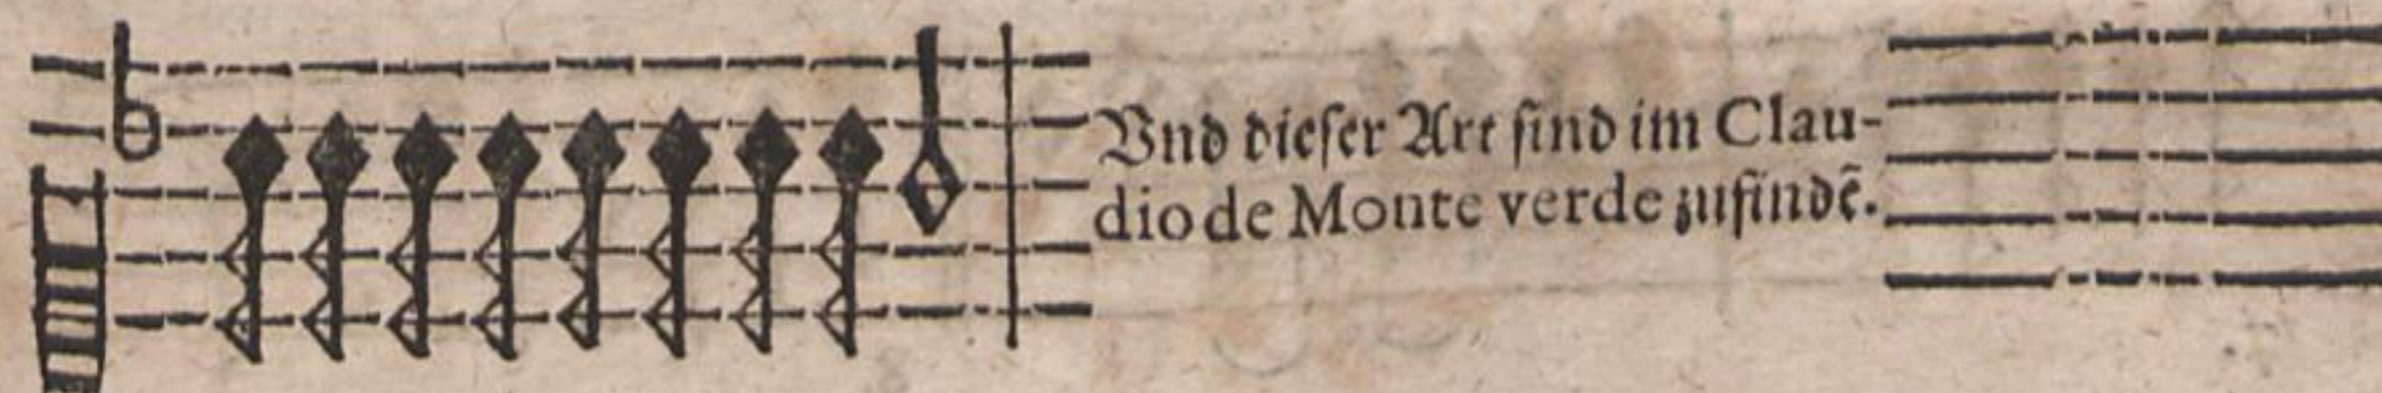 Vnd dieſer Art ſind im Clau-
dio de Monte verde zufindẽ.